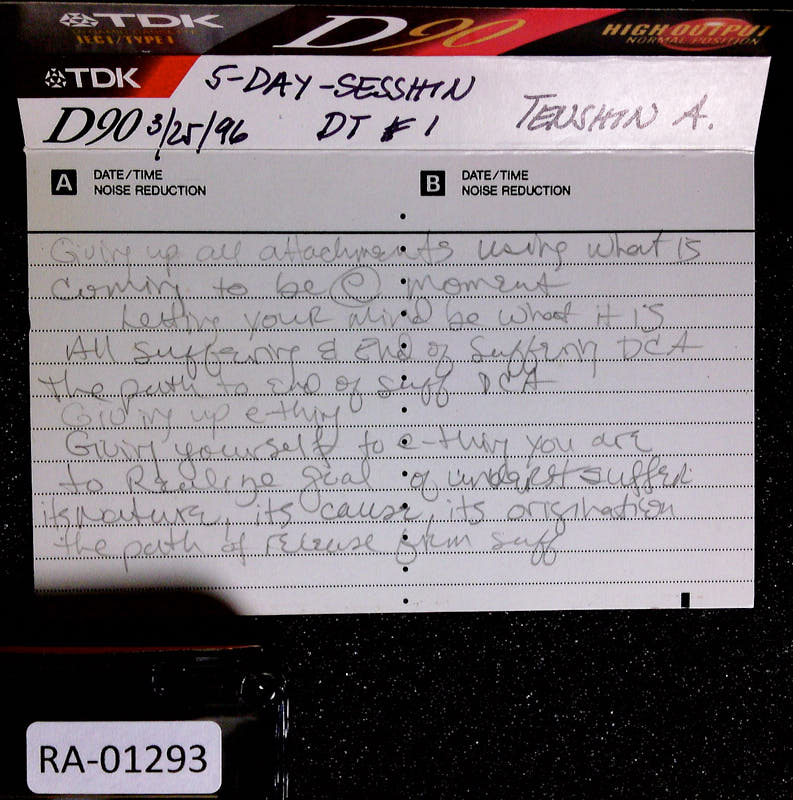 TDK D90 HIGH OUTPUT
IECI/TYPE I NORMAL POSITION
TDK 5-DAY-SESSHIN
D90 3/25/96 DT #1 TENSHIN A.
A DATE/TIME B DATE/TIME
NOISE REDUCTION NOISE REDUCTION
Giving up all attachments using what is
coming to be @ moment
Letting your mind be what it is
All suffering & End of suffering DCA
the path to End of suff DCA
Giving up e-thing
Giving yourself to e-thing you are
to Realize goal of underst suffer
its Nature, its cause, its origination
the path of release from suff
RA-01293